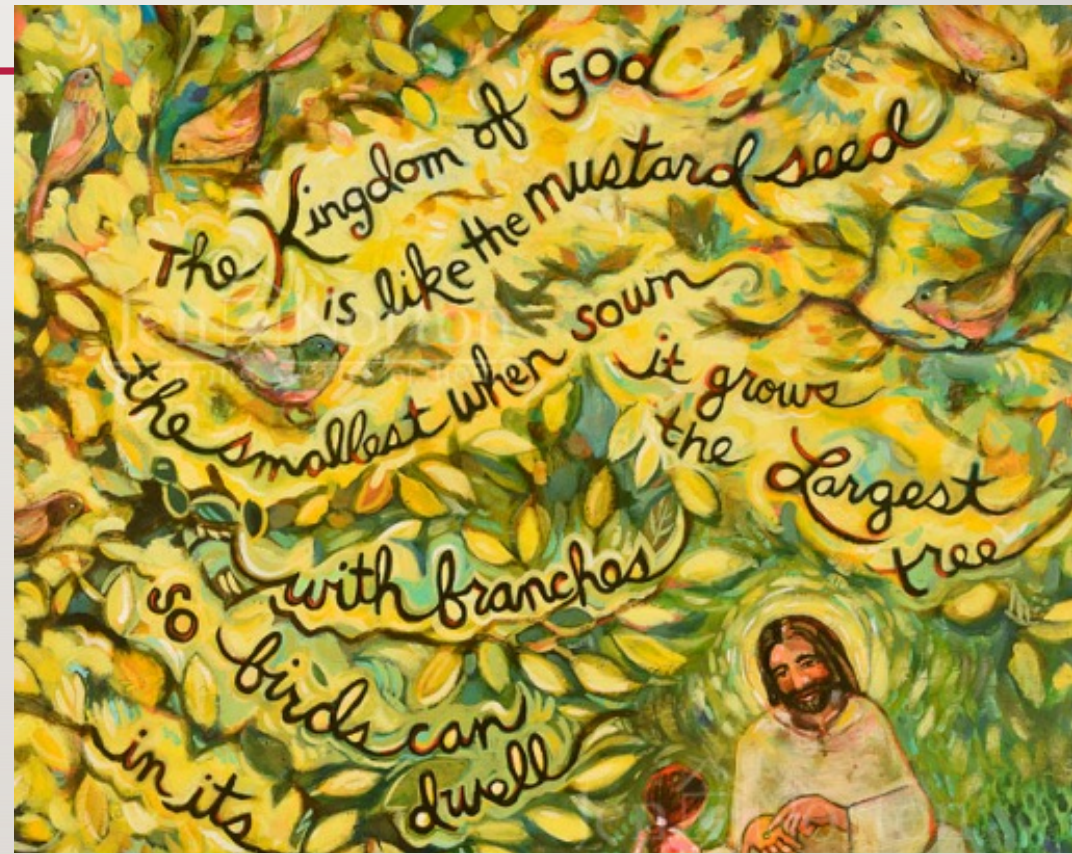 The Kingdom of God
is like the mustard seed
the smallest when sown
it grows
the Largest
tree
with branches
so birds can
dwell
in its
Jen Norton